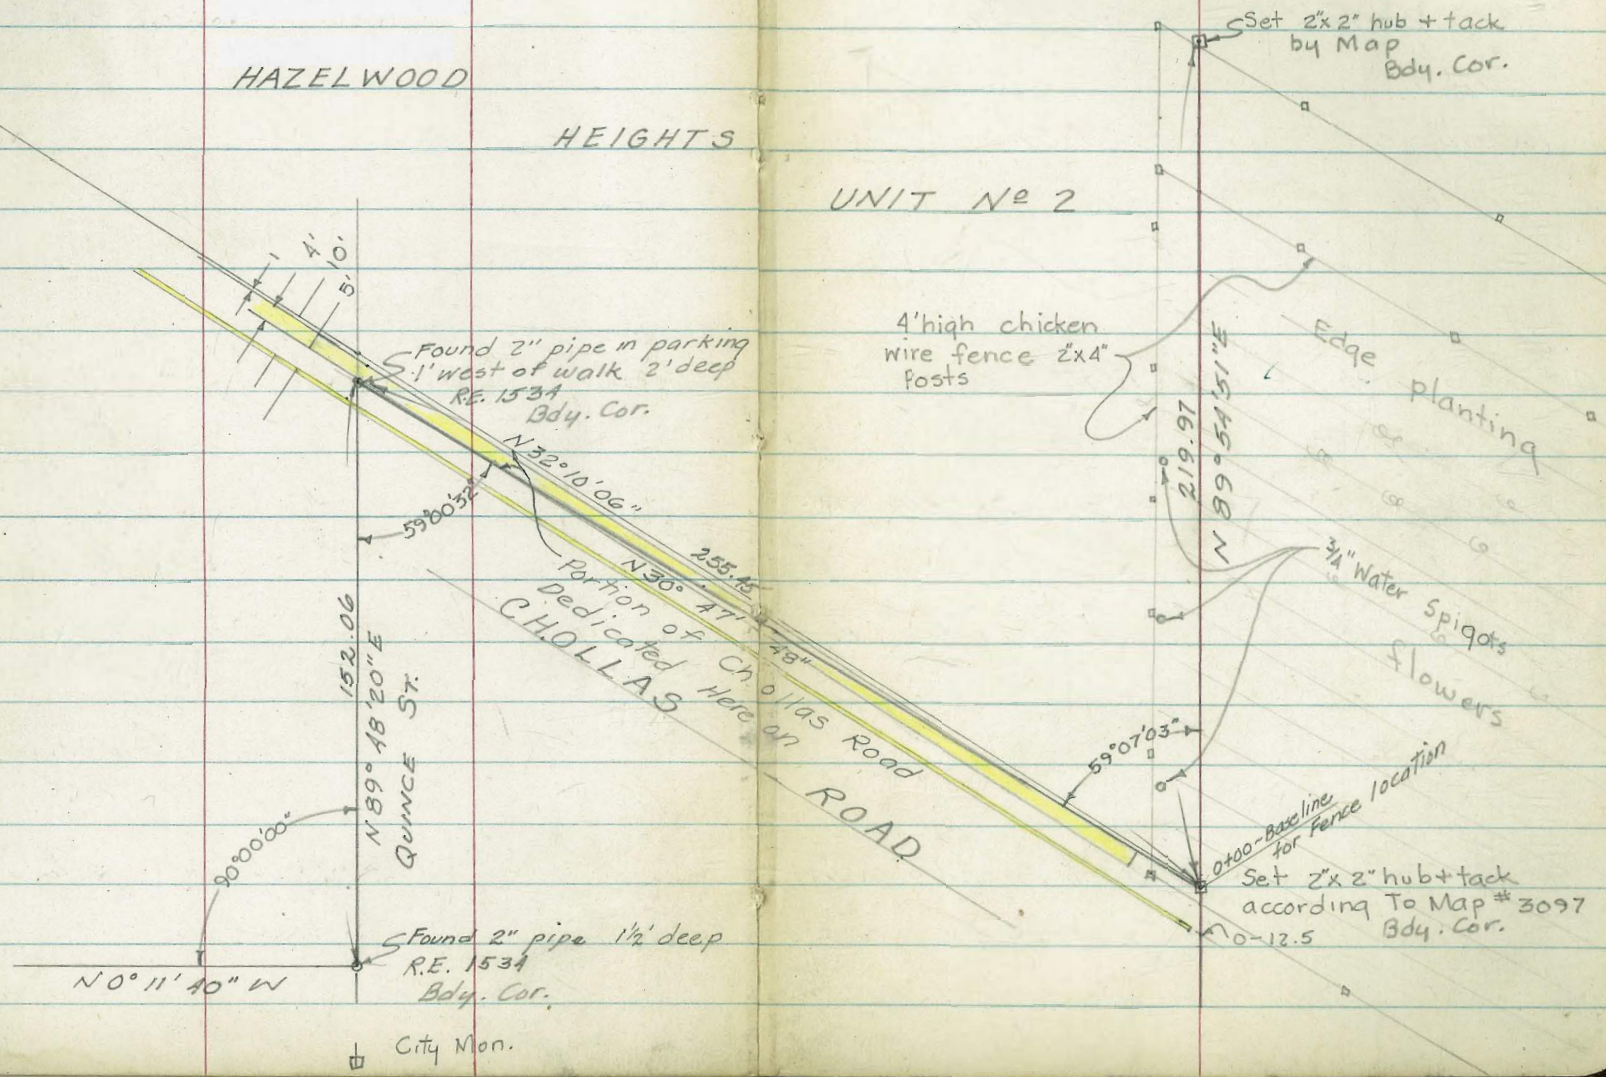 HAZELWOOD
HEIGHTS
UNIT Nº 2
Set 2"x 2" hub + tack
by Map
Bdy. Cor.
1'
4'
10'
5'
Found 2" pipe in parking
1' west of walk 2' deep
R.E. 1534
Bdy. Cor.
N 32° 10' 06"
59°00'32"
255.45
N 30° 47' 48"
Portion of Chollas Road
Dedicated Here on
CHOLLAS ROAD
152.06
N 89° 48' 20" E
QUINCE ST.
90°00'00"
N 0° 11' 40" W
Found 2" pipe 1½' deep
R.E. 1534
Bdy. Cor.
City Mon.
4' high chicken
wire fence 2"x4"
Posts
219.97
N 89° 54' 51" E
Edge planting
¾" Water Spigots
flowers
59°07'03"
0+00-Baseline
for Fence location
Set 2"x 2" hub + tack
according To Map # 3097
Bdy. Cor.
0-12.5